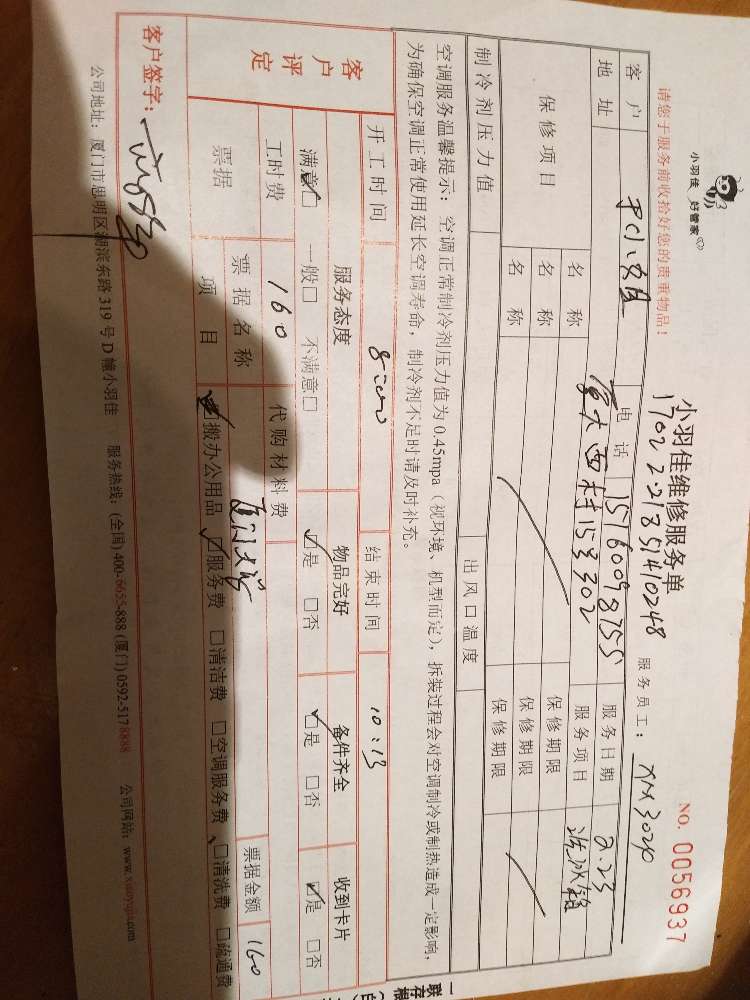 小羽佳 好管家
请您于服务前收拾好您的贵重物品！
小羽佳维修服务单
NO. 0056937
服务员工：XM3024
客户 电话 15160098755 服务日期 2.23
地址 厦大西村15号302 服务项目 洗冰箱
保修项目 名称 保修期限
名称 保修期限
名称 保修期限
制冷剂压力值 出风口温度
空调服务温馨提示：空调正常制冷剂压力值为0.45mpa（视环境、机型而定），拆装过程会对空调制冷或制热造成一定影响，
为确保空调正常使用延长空调寿命，制冷剂不足时请及时补充。
开工时间 8:00 结束时间 10:13
客户评定
服务态度 物品完好 备件齐全 收到卡片
满意☑ 一般□ 不满意□ ☑是 □否 ☑是 □否 ☑是 □否
工时费 160 代购材料费
票据 票据名称 厦门大学 票据金额 160
项目 搬办公用品 ☑服务费 □清洁费 □空调服务费 □清洗费 □疏通费
客户签字：
公司地址：厦门市思明区湖滨东路319号D幢小羽佳 服务热线：(全国)400-6655-888 (厦门)0592-5178888 公司网站：www.xiaoyujia.com